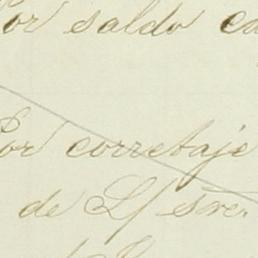 Por saldo
Por corretaje
de L/ sve.